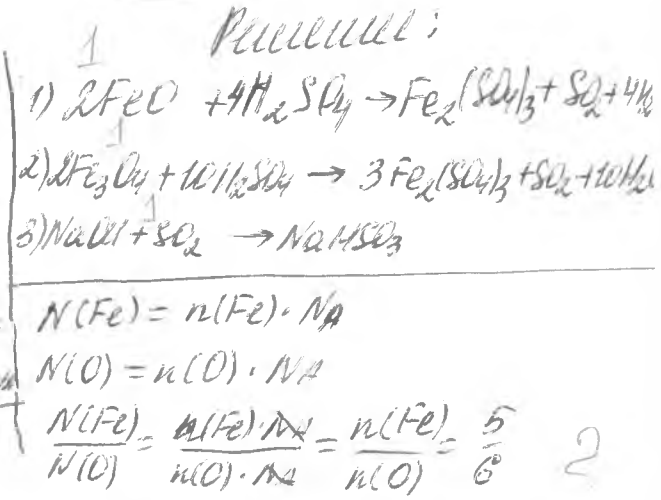 1
Решение:
1) 2FeO + 4H₂SO₄ → Fe₂(SO₄)₃ + SO₂ + 4H₂
1
2) 2Fe₃O₄ + 10H₂SO₄ → 3Fe₂(SO₄)₃ + SO₂ + 10H₂
1
3) NaOH + SO₂ → NaHSO₃
N(Fe) = n(Fe) · NA
N(O) = n(O) · NA
N(Fe)/N(O) = n(Fe)·NA/n(O)·NA = n(Fe)/n(O) = 5/6 2